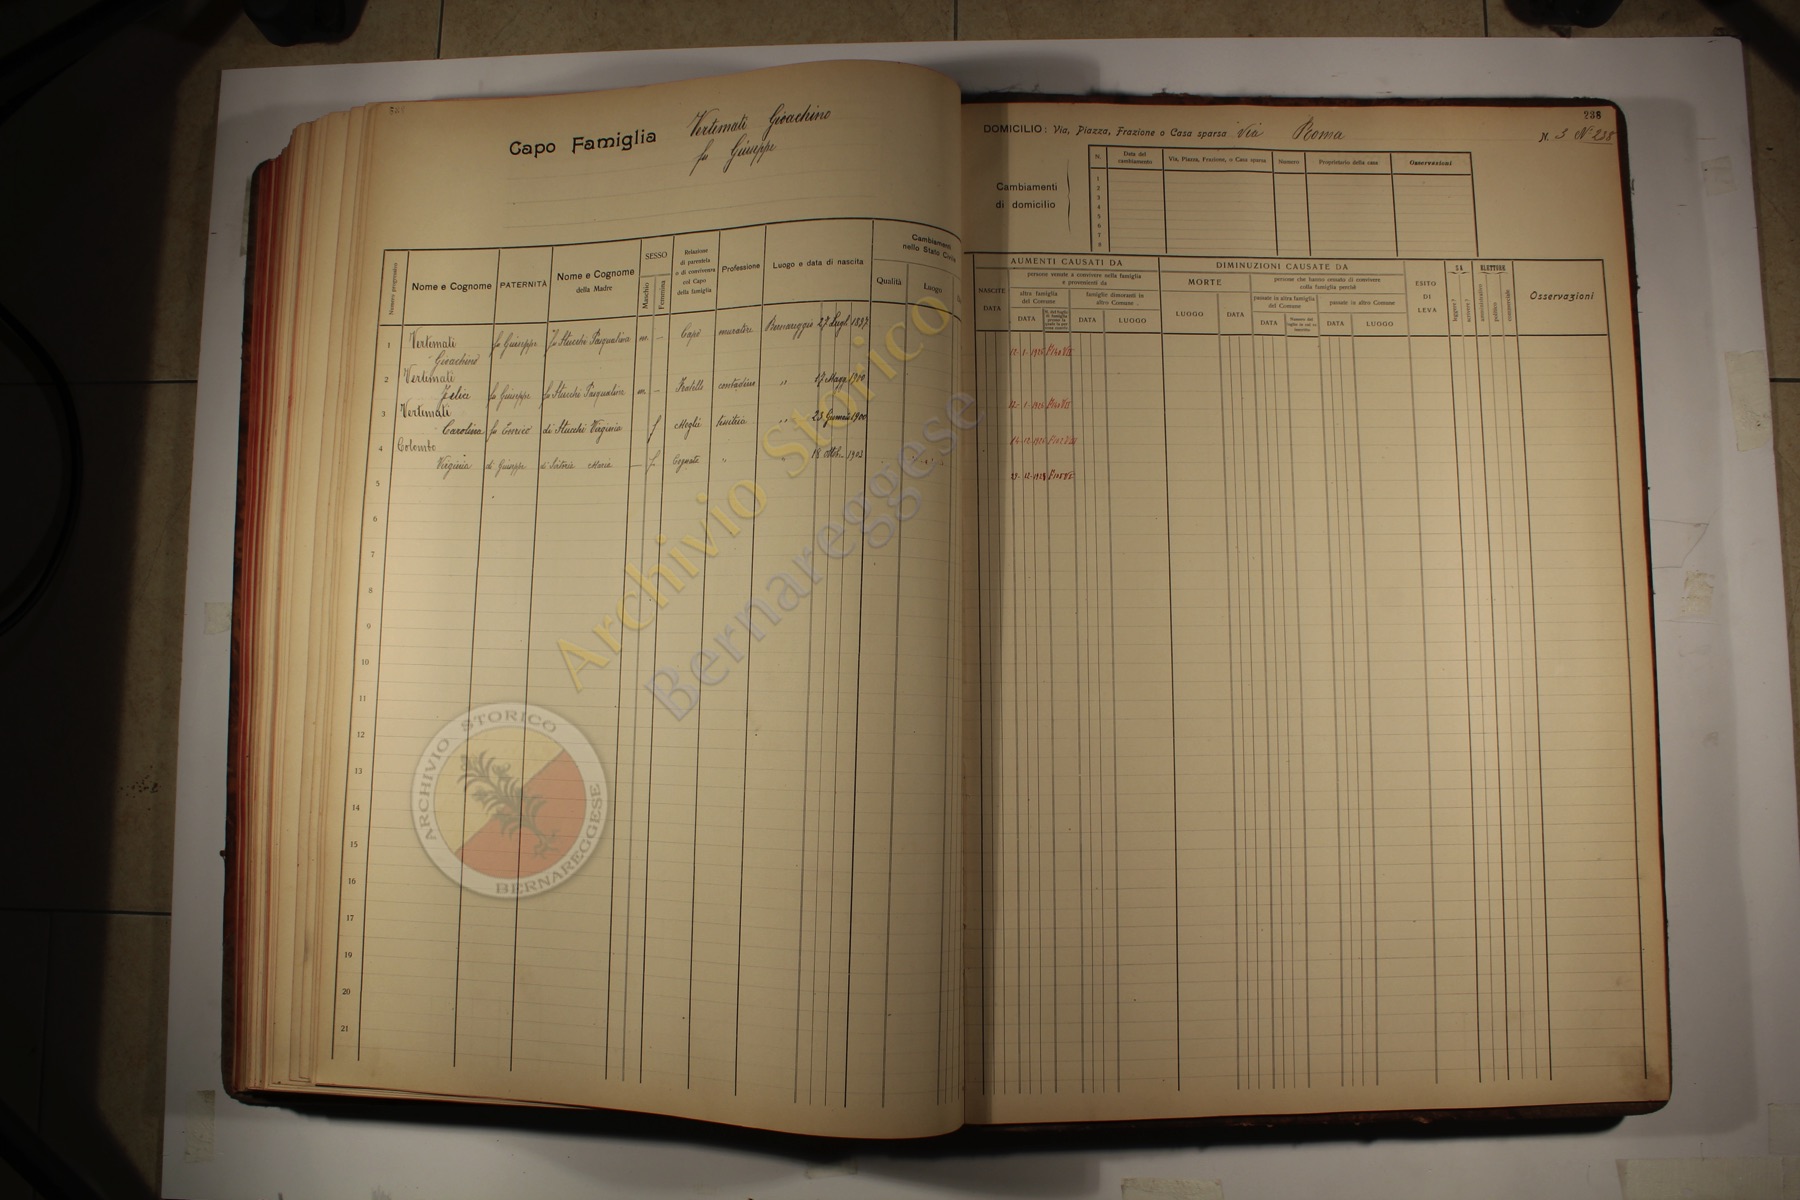 Capo Famiglia
Vertemati Gioachino
fu Giuseppe
Numero progressivo
Nome e Cognome
PATERNITÀ
Nome e Cognome
della Madre
SESSO
Maschio
Femmina
Relazione
di parentela
o di convivenza
col Capo
della famiglia
Professione
Luogo e data di nascita
Cambiamenti
nello Stato Civile
Qualità
Luogo
1 Vertemati fu Giuseppe fu Stucchi Pasqualina m. – Capo muratore Bernareggio 27 Lugl. 1897
Gioachino
2 Vertemati
Felice fu Giuseppe fu Stucchi Pasqualina m. – Fratello contadino " 17 Magg. 1900
3 Vertemati
Carolina fu Enrico di Stucchi Virginia f Moglie tessitrice " 23 Gennaio 1900
4 Colombo
Virginia di Giuseppe di Maria – f. Cognata " " 18 Ottob. 1903
5
6
7
8
9
10
11
12
13
14
15
16
17
18
19
20
21
238
DOMICILIO: Via, Piazza, Frazione o Casa sparsa Via Roma N. 3 N° 238
Cambiamenti
di domicilio
N.
Data del
cambiamento
Via, Piazza, Frazione, o Casa sparsa
Numero
Proprietario della casa
Osservazioni
1
2
3
4
5
6
7
8
AUMENTI CAUSATI DA
NASCITE
DATA
persone venute a convivere nella famiglia
e provenienti da
altra famiglia
del Comune
DATA
famiglie dimoranti in
altro Comune
DATA
LUOGO
DIMINUZIONI CAUSATE DA
MORTE
LUOGO
DATA
persone che hanno cessato di convivere
colla famiglia perchè
passate in altra famiglia
del Comune
DATA
passate in altro Comune
DATA
LUOGO
ESITO
DI
LEVA
SA
leggere?
scrivere?
ELETTORE
amministrativo
politico
commerciale
Osservazioni
Archivio Storico
Bernareggese
ARCHIVIO STORICO
BERNAREGGESE